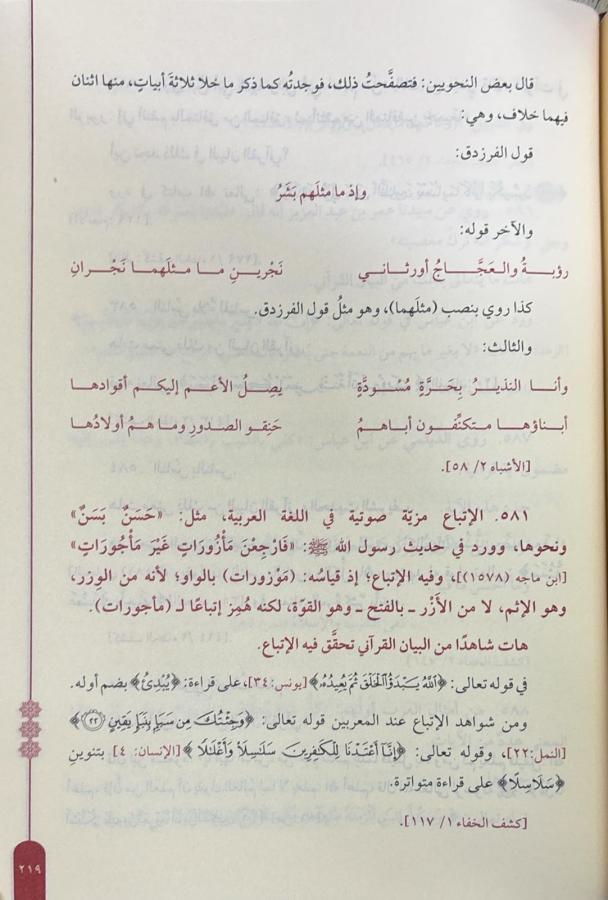 قال بعض النحويين: فتصفَّحتُ ذلك، فوجدتُه كما ذكر ما خلا ثلاثةَ أبياتٍ، منها اثنان
فيهما خلاف، وهي:
قول الفرزدق:
وإذ ما مثلَهم بَشَرُ
والآخر قوله:
رؤبـة والـعَجَّـاجُ أورثـاني نَجْرينِ مـا مـثلَهمـا نَجْـرانِ
كذا روي بنصب (مثلَهما)، وهو مثلُ قول الفرزدق.
والثالث:
وأنـا النذيـرُ بِحَـرَّةٍ مُسْـودَّةٍ يصِلُ الأعـم إليكـم أقوادهـا
أبنـاؤهـا متكنِّفـون أباهـمُ حَنِقو الصدورِ وما همُ أولادُها
[الأشباه ٢/ ٥٨].
٥٨١. الإتباع مزيّة صوتية في اللغة العربية، مثل: «حَسَنٌ بَسَنٌ»
ونحوها، وورد في حديث رسول الله ﷺ: «فَارْجِعْنَ مَأْزُورَاتٍ غَيْرَ مَأْجُورَاتٍ»
[ابن ماجه (١٥٧٨)]، وفيه الإتباع؛ إذ قياسُه: (مَوْزورات) بالواو؛ لأنه من الوزر،
وهو الإثم، لا من الأَزْر ـ بالفتح ـ وهو القوّة، لكنه هُمِز إتباعًا لـ (مأجورات).
هات شاهدًا من البيان القرآني تحقَّق فيه الإتباع.
في قوله تعالى: ﴿ٱللَّهُ يَبْدَؤُا۟ ٱلْخَلْقَ ثُمَّ يُعِيدُهُۥ﴾ [يونس: ٣٤]، على قراءة: ﴿يُبْدِئُ﴾ بضم أوله.
ومن شواهد الإتباع عند المعربين قوله تعالى: ﴿وَجِئْتُكَ مِن سَبَإٍۭ بِنَبَإٍ يَقِينٍ ٢٢﴾
[النمل: ٢٢]، وقوله تعالى: ﴿إِنَّآ أَعْتَدْنَا لِلْكَٰفِرِينَ سَلَٰسِلَا۟ وَأَغْلَٰلًا﴾ [الإنسان: ٤] بتنوينِ
﴿سَلَاسِلًا﴾ على قراءة متواترة.
[كشف الخفاء ١/ ١١٧].
٢١٩